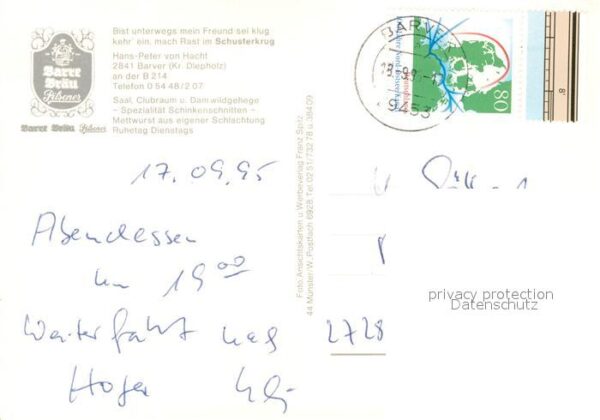 Bist unterwegs mein Freund sei klug
kehr' ein, mach Rast im Schusterkrug
Hans-Peter von Hacht
2841 Barver (Kr. Diepholz)
an der B 214
Telefon 0 54 48 / 2 07
Saal, Clubraum u. Damwildgehege
– Spezialität Schinkenschnitten –
Mettwurst aus eigener Schlachtung
Ruhetag Dienstags
Barre
Bräu
Pilsener
Barre Bräu Pilsener
Foto Ansichtskarten u. Werbeverlag Franz Spitz
44 Münster/W. Postfach 6928, Tel. 02 51/732 78 u. 384 09
BARV
9453
80
17.09.95
Abendessen
um 19 00
Weiterfahrt
Hoya
2728
privacy protection
Datenschutz